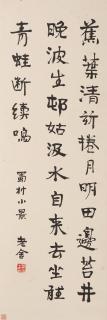 蕉叶清新捲月明田邊苔井
晚波生邨姑汲水自来去坐聽
青蛙断續鳴
蜀村小景 老舍